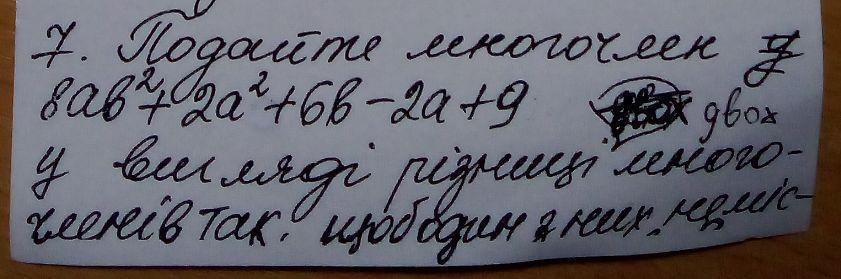 7. Подайте многочлен у
8ab²+2a²+6b-2a+9 двох
у вигляді різниці много-
членів так. щоб один з них не міс-